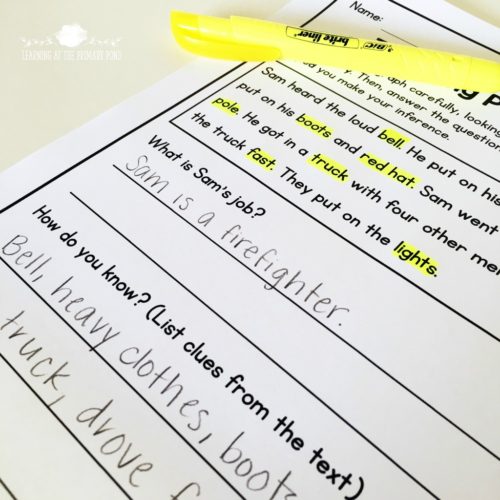 LEARNING AT THE PRIMARY POND
BIC
brite liner
Name:
carefully, looking
you make your inference. Then, answer the question
Sam heard the loud bell. He put on his
put on his boots and red hat. Sam went
pole. He got in a truck with four other me
the truck fast. They put on the lights.
What is Sam's job?
Sam is a firefighter.
How do you know? (List clues from the text)
Bell, heavy clothes, boots
truck, drove f